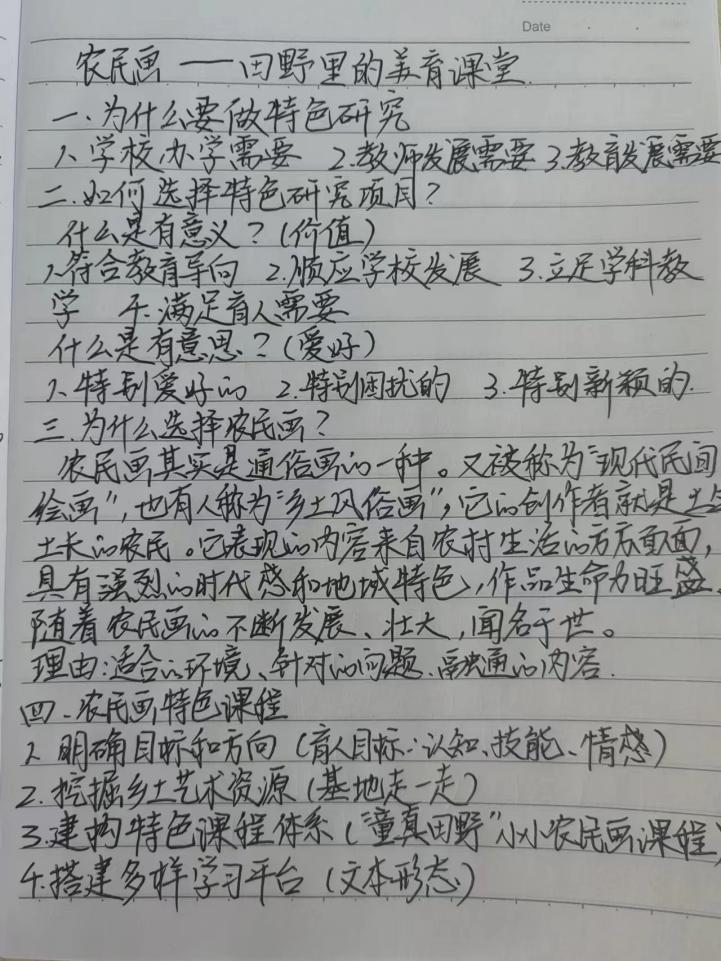 Date
农民画——田野里的美育课堂
一、为什么要做特色研究
1、学校办学需要 2.教师发展需要 3.教育发展需要
二.如何选择特色研究项目?
什么是有意义?(价值)
1、符合教育导向 2.顺应学校发展 3.立足学科教
学 4.满足育人需要
什么是有意思?(爱好)
1、特别爱好的 2.特别困扰的 3.特别新颖的.
三.为什么选择农民画?
农民画其实是通俗画的一种。又被称为“现代民间
绘画”,也有人称为“乡土风俗画”,它的创作者就是土生
土长的农民。它表现的内容来自农村生活的方方面面,
具有强烈的时代感和地域特色,作品生命力旺盛。
随着农民画的不断发展、壮大,闻名于世。
理由:适合的环境、针对的问题、融通的内容.
四.农民画特色课程
1、明确目标和方向(育人目标:认知、技能、情感)
2.挖掘乡土艺术资源(基地走一走)
3.建构特色课程体系(“童真田野”小小农民画课程)
4.搭建多样学习平台(文本形态)